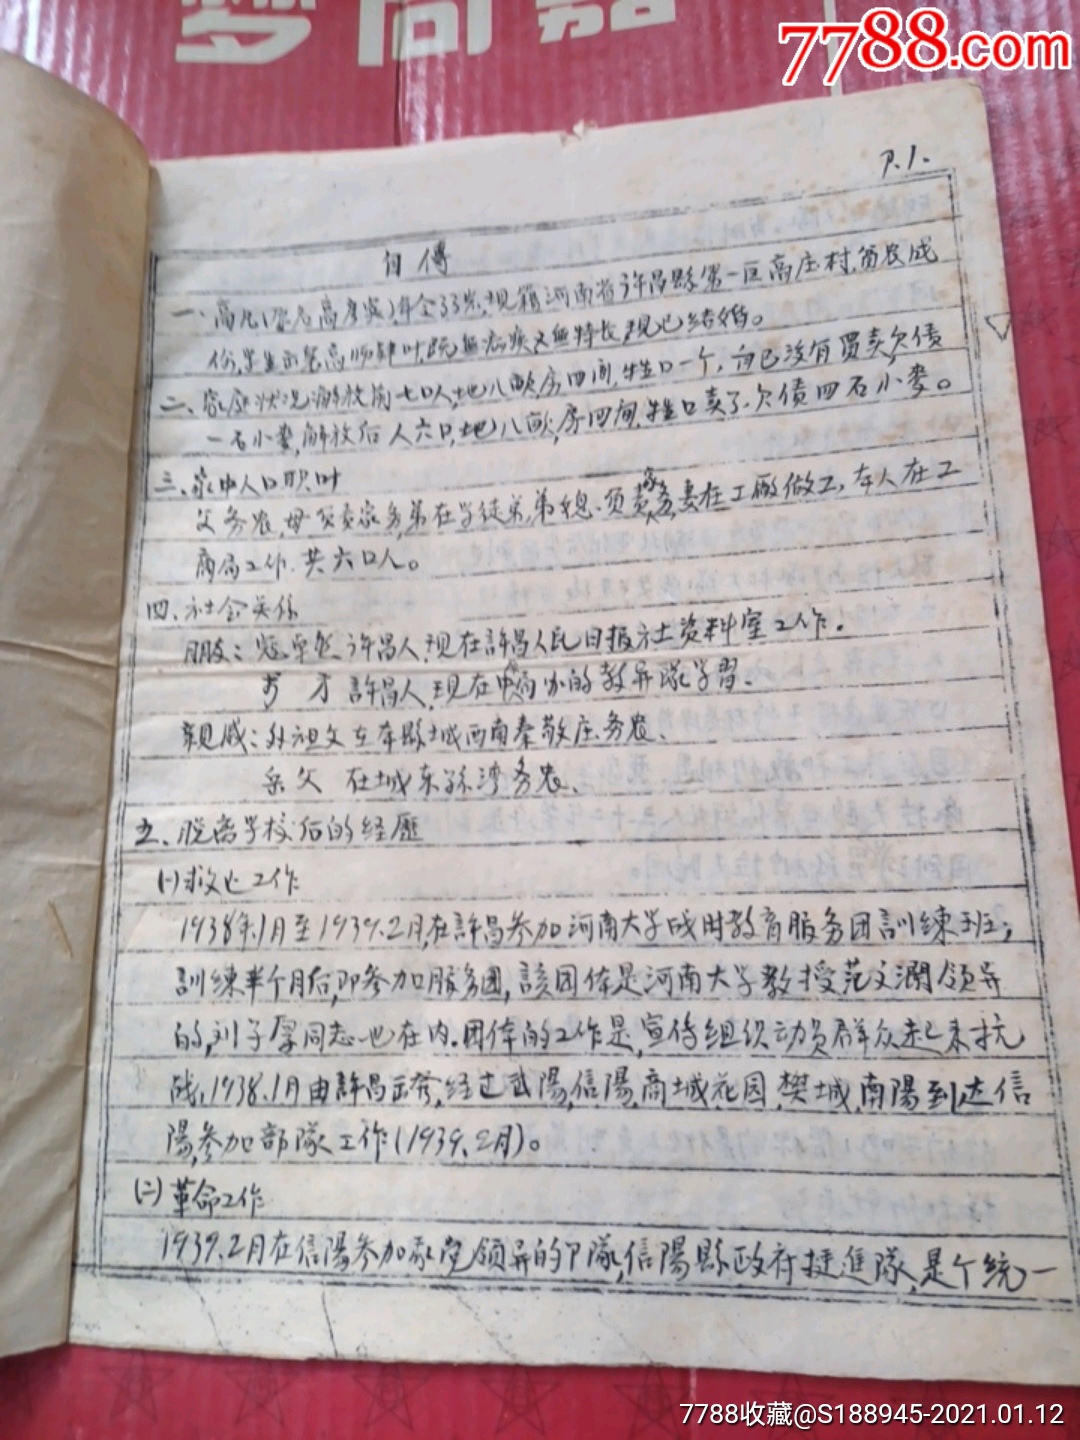 梦同嘉
7788.com
P.1.
自傳
一、高凡(原名高彦宾)年全33岁,现籍河南省许昌縣第一区高庄村,贫农成
份,学生出身,高师肄叶,既無病疾又無特长,现已结婚。
二、家庭状况:解放前七口人,地八畝,房四间,牲口一个,自己没有買卖,欠债
一石小麦,解放后人六口,地八畝,房四间,牲口卖了,欠债四石小麦。
三、家中人口职叶
父务农,母负责家务,弟在学徒弟,弟媳负责家务,妻在工廠做工,本人在工
商局工作.共六口人。
四、社会关係
朋友:许昌人,现在許昌人民日报社资料室工作.
才許昌人,现在中南办的教导隊学習、
親戚:外祖父在本縣城西南秦敬庄务农、
岳父 在城东孫湾务农、
五、脱离学校后的经歷
(一)救亡工作
1938年.1月至1939.2月,在許昌参加河南大学战时教育服务团訓練班;
訓練半个月后,即参加服务團,該团体是河南大学教授范文瀾領导
的,刘子厚同志也在内.团体的工作是,宣传组织动员群众起来抗
战,1938.1月由許昌出發,经过武陽,信陽,商城,花园,樊城,南陽到达信
陽,参加部隊工作(1939.2月)。
(二)革命工作
1939.2月在信陽参加我党領导的卩隊,信陽縣政府挺進隊,是个統一
7788收藏@S188945-2021.01.12